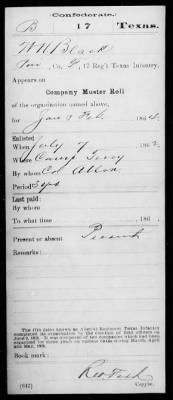 Confederate.
B 17 Texas.
W H Black
Pvt, Co. B, 17 Reg't Texas Infantry.
Appears on
Company Muster Roll
of the organization named above,
for Jan & Feb, 1864.
Enlisted:
When July 7, 1862.
Where Camp Terry
By whom Col Allen
Period 3 yrs
Last paid:
By whom
To what time , 186 .
Present or absent Present
Remarks:
Book mark:
(642) Copyist.